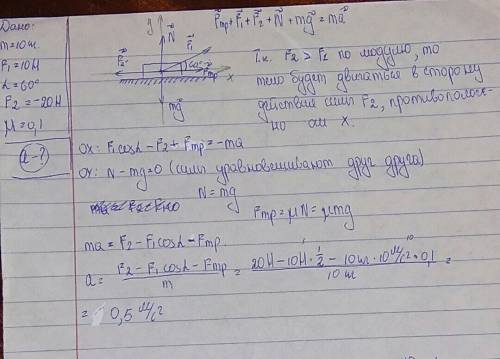 Дано:
m=10кг.
F₁=10Н
α=60°
F₂=-20Н
μ=0,1
a-?
y
N
F₁
F₂
60°
Fтр
x
mg
Fтр+F₁+F₂+N+mg=ma
Т.к. F₂ > F₁ по модулю, то
тело будет двигаться в сторону
действия силы F₂, противополож-
но ох x.
ox: F₁cosα-F₂+Fтр=-ma
oy: N-mg=0 (силы уравновешивают друг друга)
N=mg
Fтр=μN=μmg
ma=F₂-F₁cosα-Fтр.
a= F₂-F₁cosα-Fтр / m = 20Н-10Н·1/2-10кг·10м/с²·0,1 / 10кг =
= 0,5 м/с²